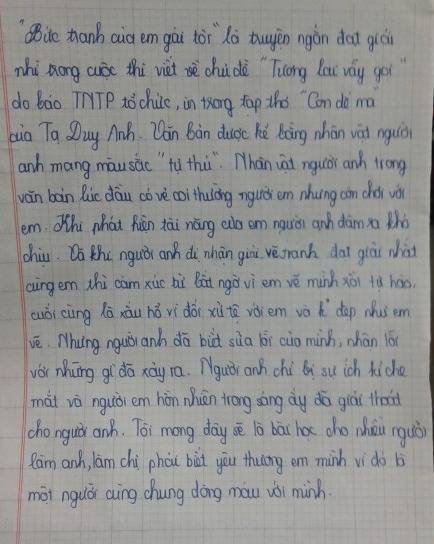 "Bức tranh của em gái tôi" là truyện ngắn đạt giải
nhì trong cuộc thi viết về chủ đề "Tương lai vẫy gọi"
do báo TNTP tổ chức, in trong tập thơ "Con dế ma"
của Tạ Duy Anh. Văn bản được kể bằng nhân vật người
anh mang màu sắc "tự thú". Nhân vật người anh trong
văn bản lúc đầu có vẻ coi thường người em nhưng còn chơi với
em. Khi phát hiện tài năng của em người anh đâm ra khó
chịu. Và khi người anh đi nhận giải vẽ tranh đạt giải nhất
cùng em thì cảm xúc từ bất ngờ vì em vẽ mình xồi tự hào,
cuối cùng là xấu hổ vì đối xử tệ với em và k° đẹp như em
vẽ. Nhưng người anh đã biết sửa lỗi của mình, nhận lỗi
với những gì đã xảy ra. Người anh chỉ bị sự ích kỉ che
mắt và người em hồn nhiên trong sáng ấy đã giải thoát
cho người anh. Tôi mong đây sẽ là bài học cho nhều người
làm anh, làm chị phải biết yêu thương em mình vì đó là
một người cùng chung dòng máu với mình.